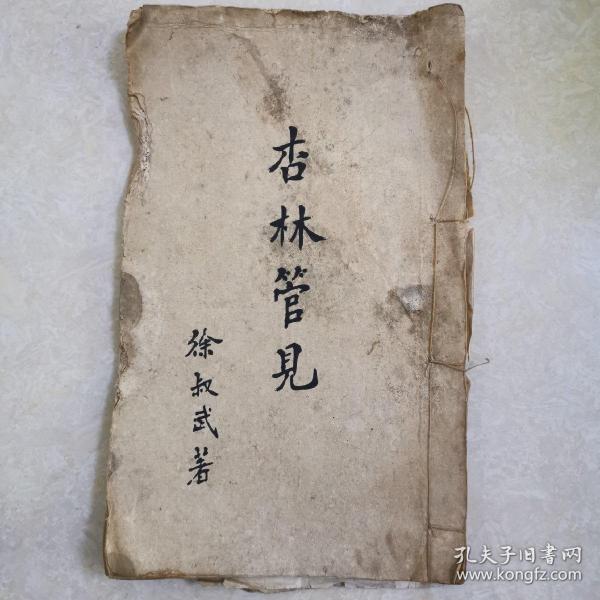 杏林管見
徐叔武著
孔夫子旧書网
www.kongfz.com